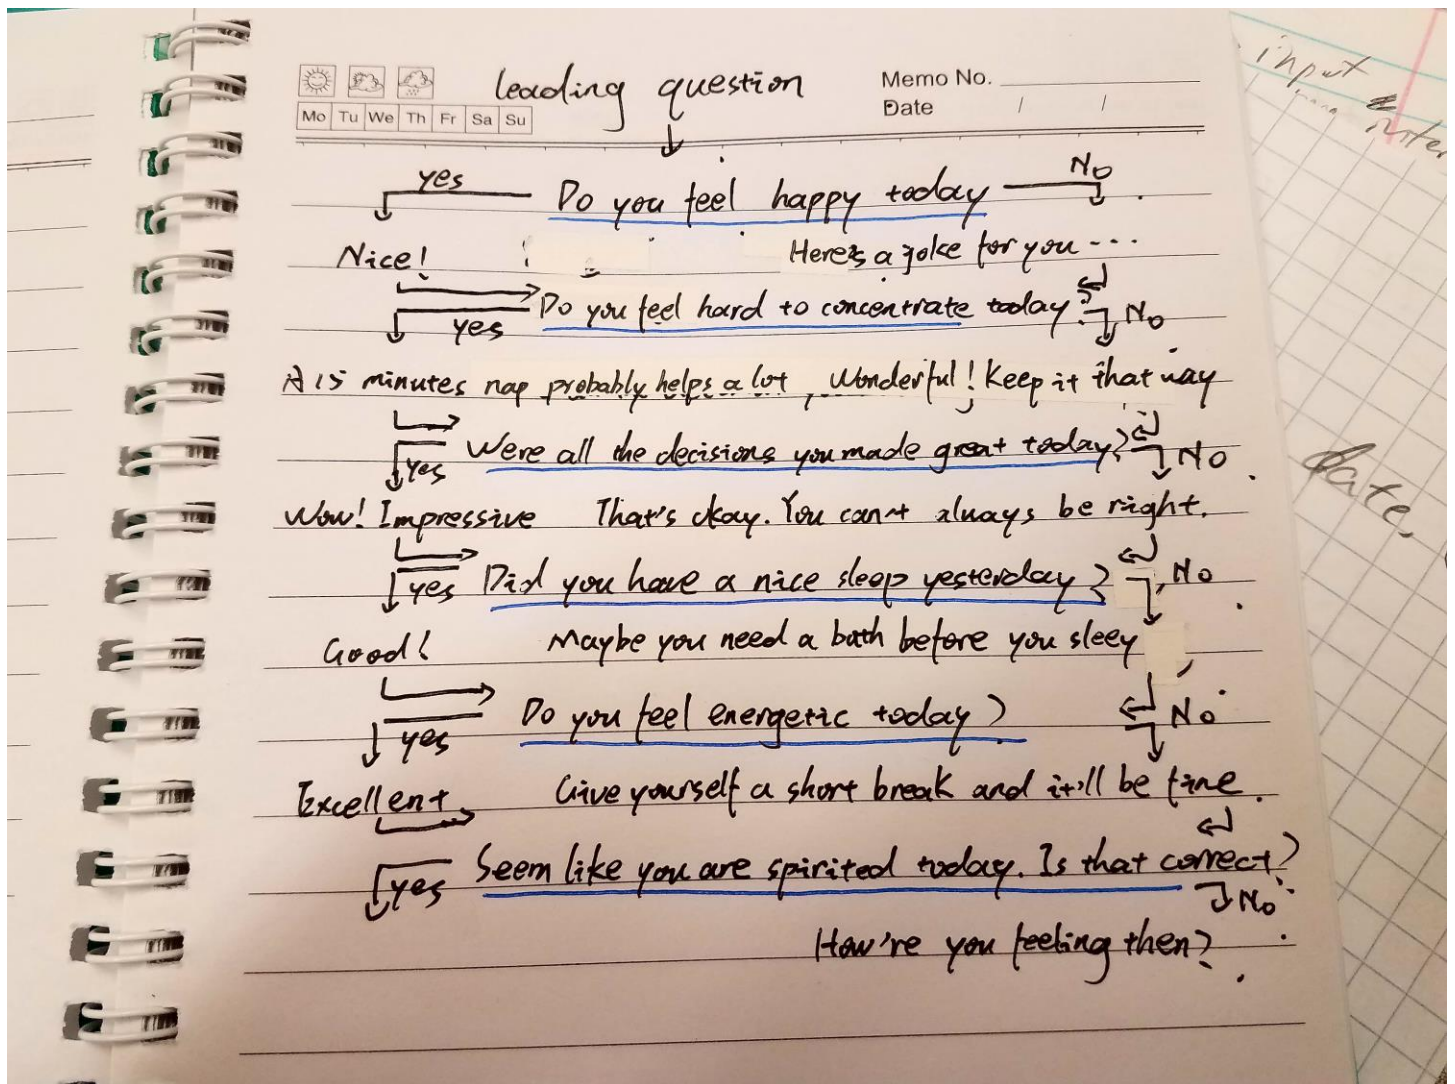 leading question
Memo No.
Date / /
Mo Tu We Th Fr Sa Su
yes Do you feel happy today No
Nice! Here's a joke for you ...
yes Do you feel hard to concentrate today? No
A 15 minutes nap probably helps a lot, Wonderful! Keep it that way
yes Were all the decisions you made great today? No
Wow! Impressive That's okay. You can't always be right.
yes Did you have a nice sleep yesterday? No
Good! Maybe you need a bath before you sleep
yes Do you feel energetic today? No
Excellent. Give yourself a short break and it'll be fine.
yes Seem like you are spirited today. Is that correct? No
How're you feeling then?
input
date,